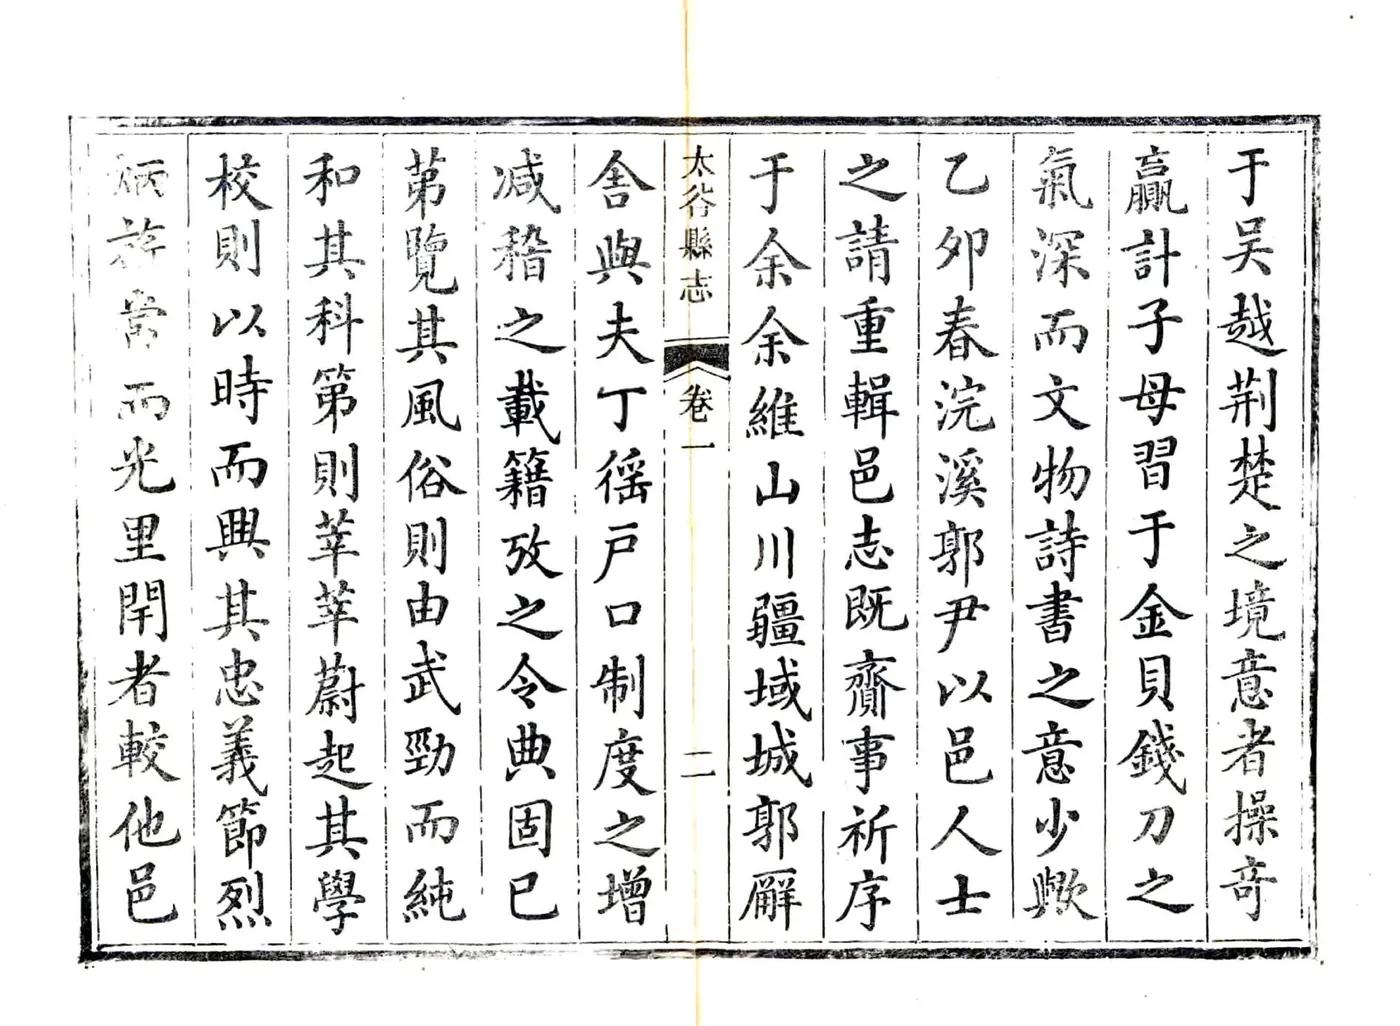 于吴越荆楚之境意者操奇
贏計子母習于金貝錢刀之
氣深而文物詩書之意少歟
乙夘春浣溪郭尹以邑人士
之請重輯邑志既齎事祈序
于余余維山川疆域城郭廨
太谷縣志
卷一
二
舍與夫丁徭戶口制度之增
减稽之載籍攷之令典固已
苐覽其風俗則由武勁而純
和其科第則莘莘蔚起其學
校則以時而興其忠義節烈
炳
當而光里閈者較他邑